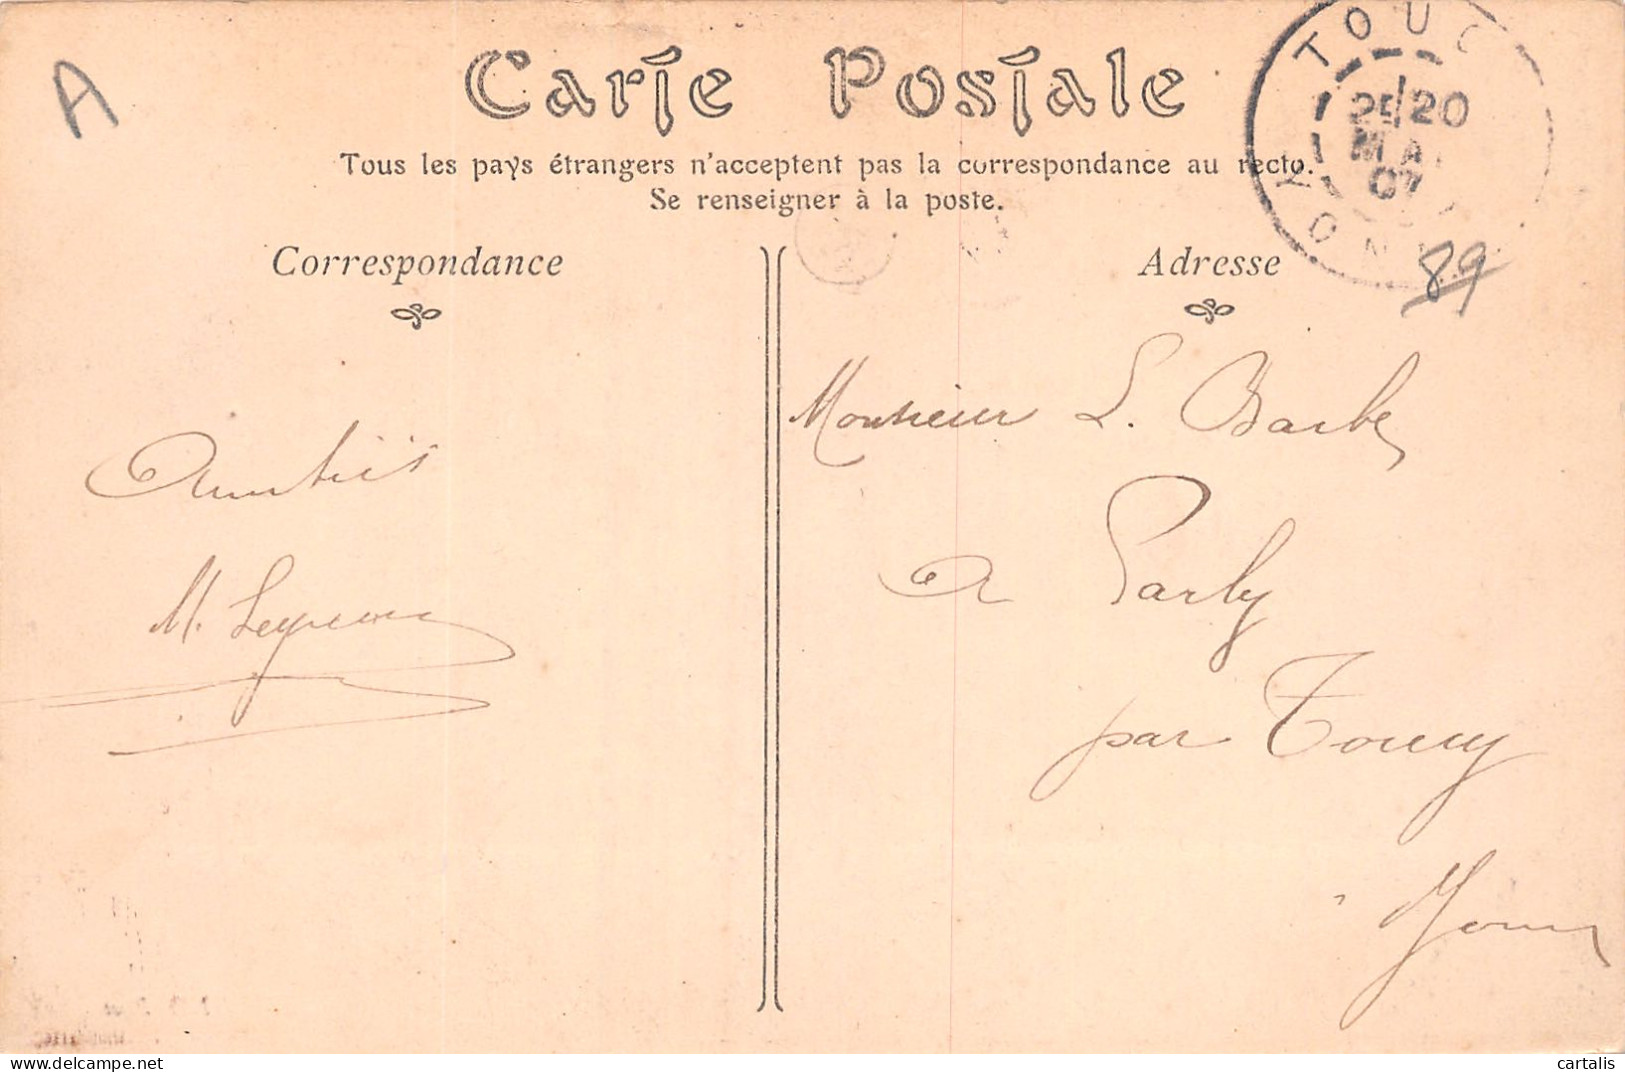 A
Carte Postale
Tous les pays étrangers n'acceptent pas la correspondance au recto.
Se renseigner à la poste.
TOUC
25 20
MA
07
YONN
89
Correspondance
Adresse
Amitiés
M.
Monsieur L. Barbe
A Parly
par Toucy
Yonne
cartalis